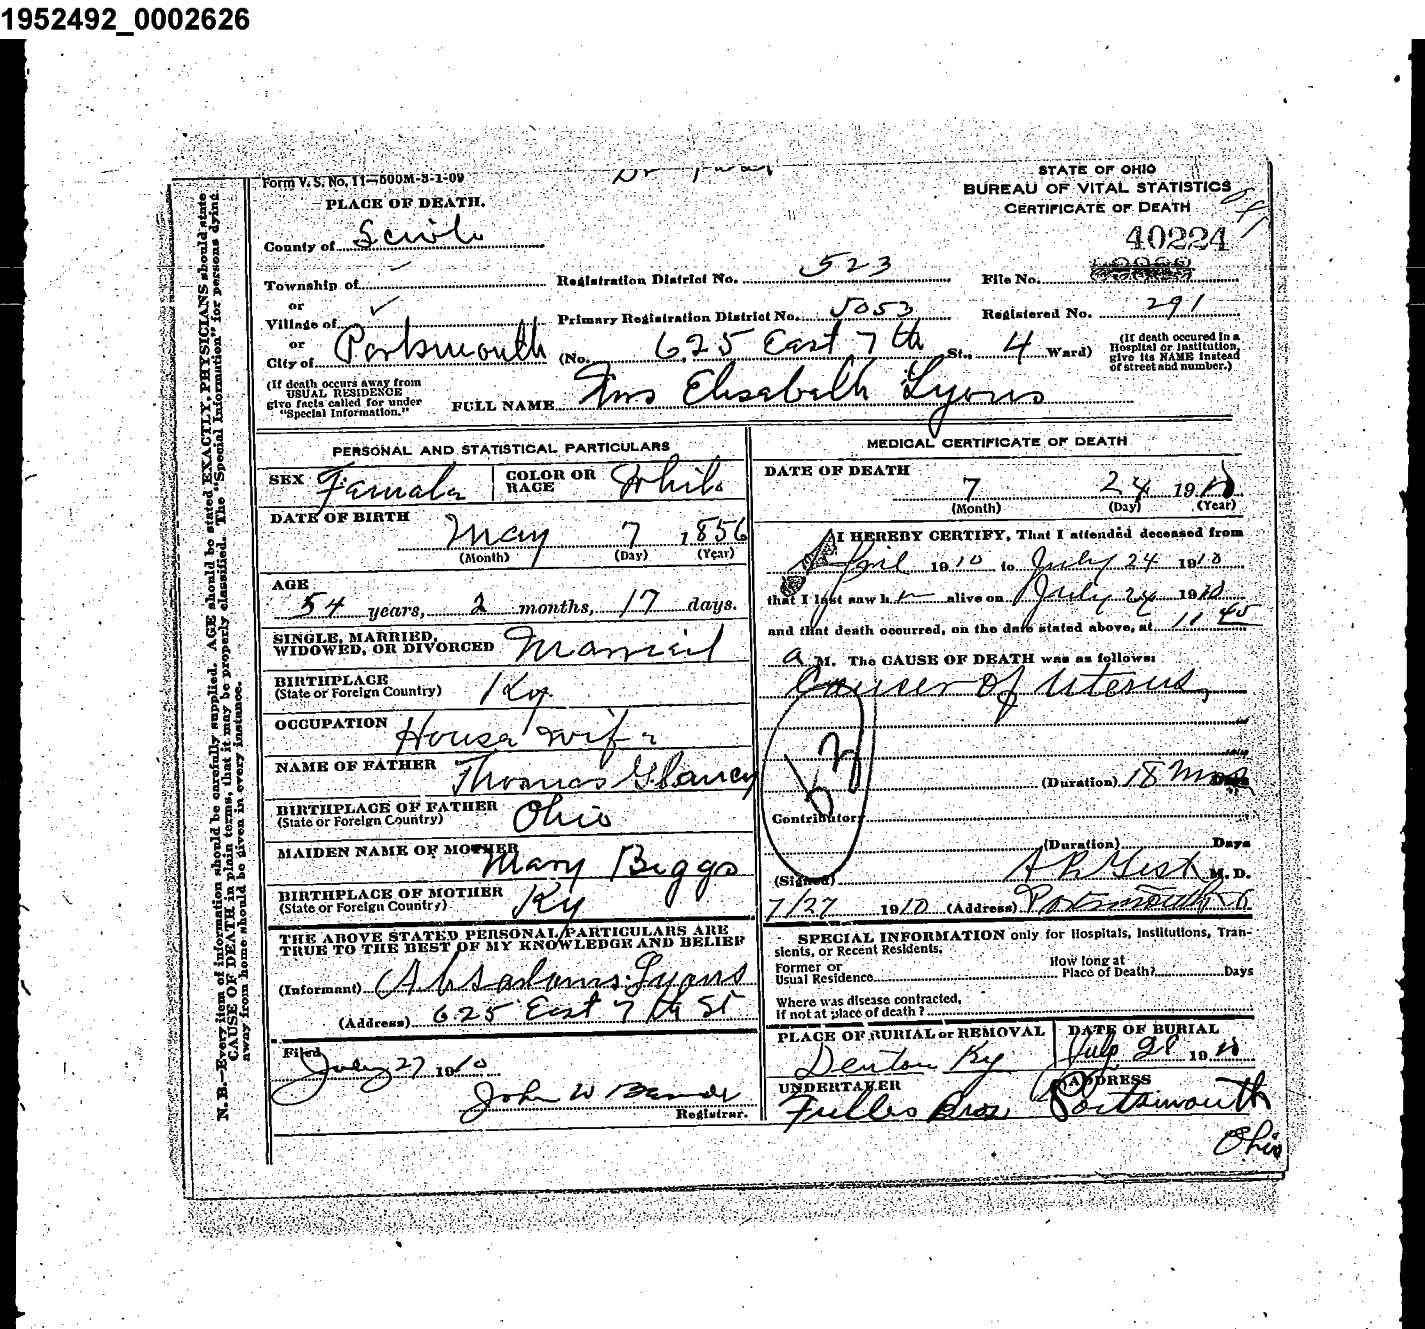 1952492_0002626
Form V. S. No. 11—500M-3-1-09
STATE OF OHIO
BUREAU OF VITAL STATISTICS
CERTIFICATE OF DEATH
PLACE OF DEATH.
40224
County of Scioto
Township of
Registration District No. 523
File No.
or
Village of
Primary Registration District No. 5053
Registered No. 291
or
City of Portsmouth (No. 625 East 7th St., 4 Ward)
(If death occured in a Hospital or Institution, give its NAME instead of street and number.)
(If death occurs away from USUAL RESIDENCE give facts called for under "Special Information.")
FULL NAME Mrs Elisabeth Lyons
PERSONAL AND STATISTICAL PARTICULARS
SEX Female
COLOR OR RACE White
DATE OF BIRTH
May 7 1856
(Month) (Day) (Year)
AGE
54 years, 2 months, 17 days.
SINGLE, MARRIED, WIDOWED, OR DIVORCED Married
BIRTHPLACE
(State or Foreign Country) Ky.
OCCUPATION House wife
NAME OF FATHER Thomas Glancy
BIRTHPLACE OF FATHER
(State or Foreign Country) Ohio
MAIDEN NAME OF MOTHER Mary Biggs
BIRTHPLACE OF MOTHER
(State or Foreign Country) Ky
THE ABOVE STATED PERSONAL PARTICULARS ARE
TRUE TO THE BEST OF MY KNOWLEDGE AND BELIEF
(Informant) Absadams Lyons
(Address) 625 East 7th St
Filed
July 27 1910
John W
Registrar.
MEDICAL CERTIFICATE OF DEATH
DATE OF DEATH
7 24 1910
(Month) (Day) (Year)
I HEREBY CERTIFY, That I attended deceased from
April 1910 to July 24 1910
that I last saw h r alive on July 24 1910
and that death occurred, on the date stated above, at 11 45
a M. The CAUSE OF DEATH was as follows:
Cancer of Uterus,
42
(Duration) 18 Mos Days
Contributory
(Duration) Days
(Signed) A R Gest M. D.
7/27 1910 (Address) Portsmouth O
SPECIAL INFORMATION only for Hospitals, Institutions, Transients, or Recent Residents.
Former or Usual Residence
How long at Place of Death? Days
Where was disease contracted,
If not at place of death?
PLACE OF BURIAL or REMOVAL
Denton Ky
DATE OF BURIAL
July 28 1910
UNDERTAKER
Bros
ADDRESS
Portsmouth
Ohio
N. B.—Every item of information should be carefully supplied. AGE should be stated EXACTLY. PHYSICIANS should state
CAUSE OF DEATH in plain terms, that it may be properly classified. The "Special Information" for persons dying
away from home should be given in every instance.